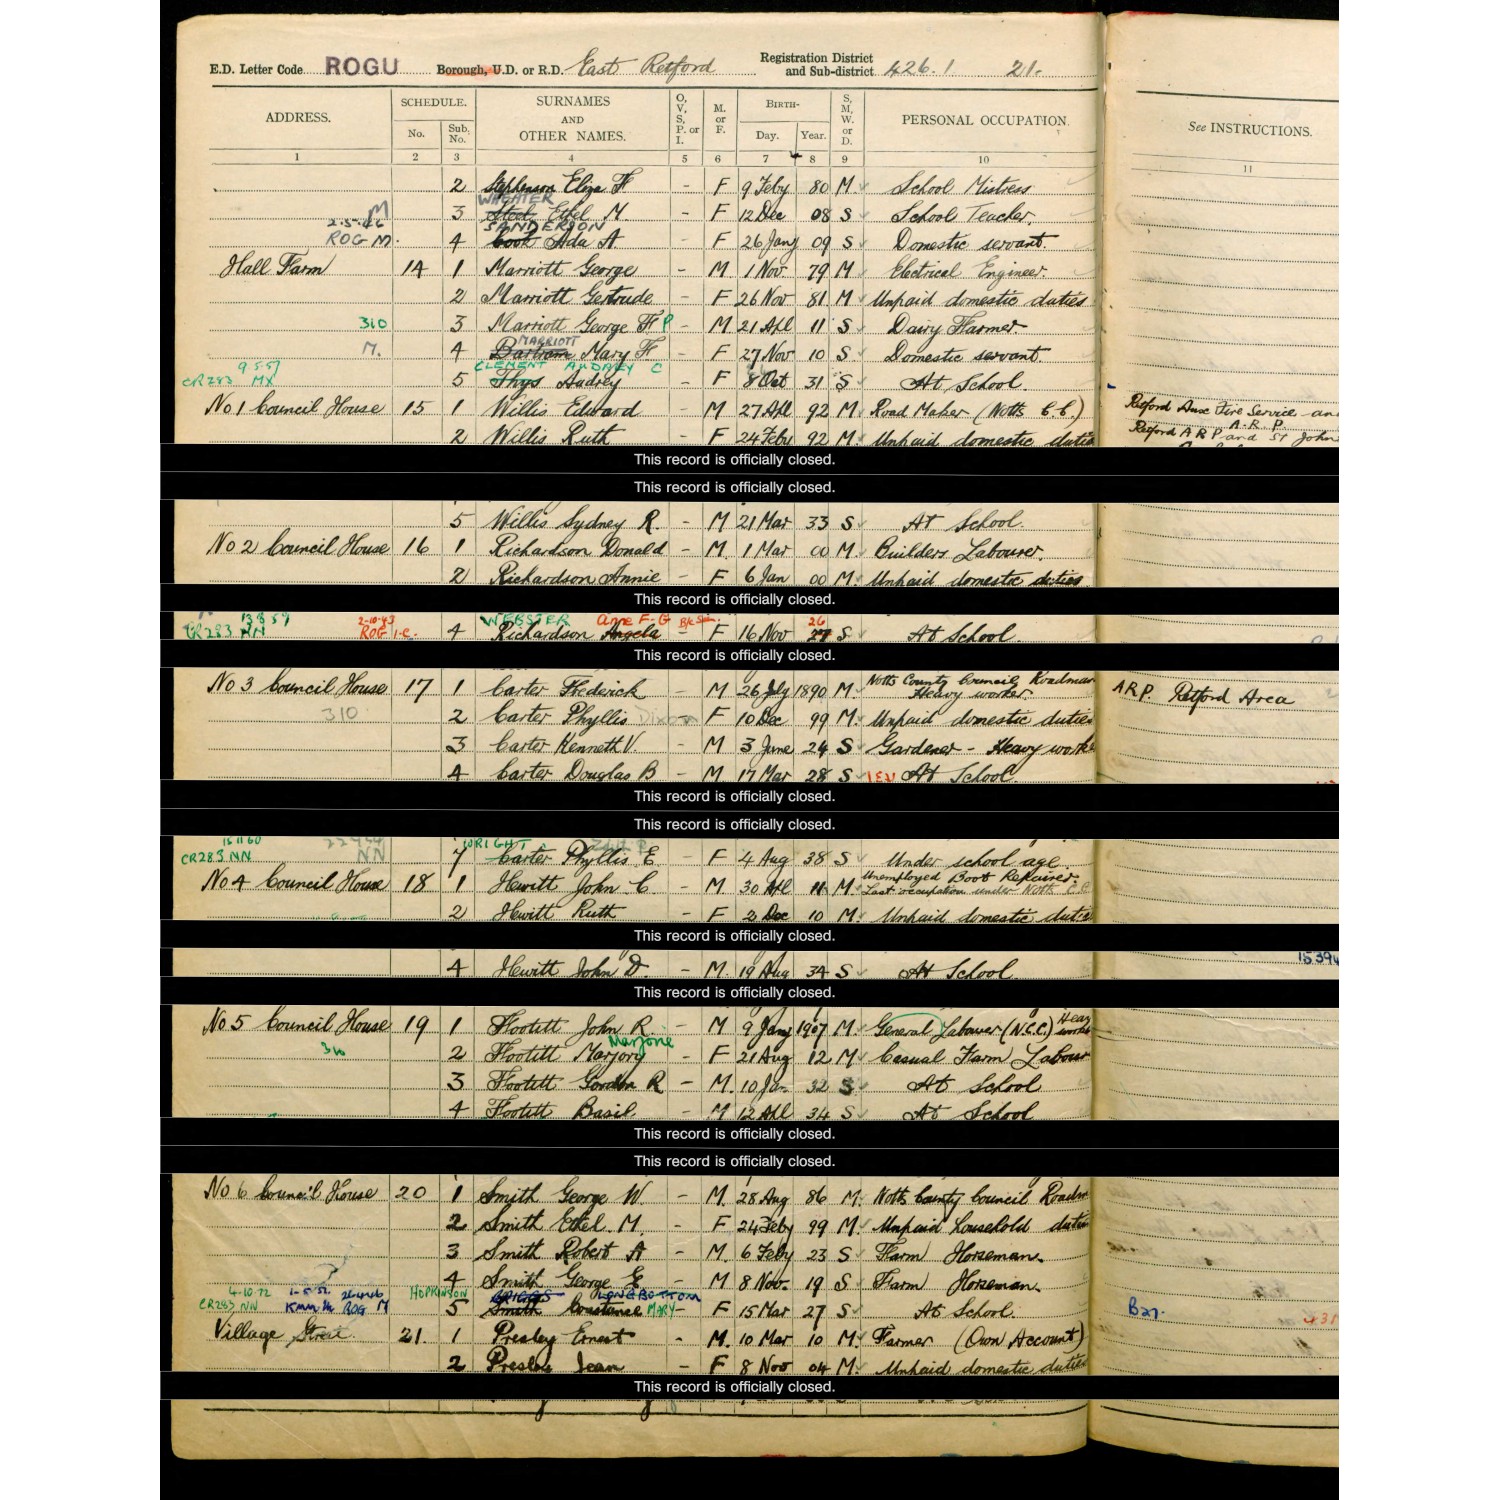 E.D. Letter Code ROGU Borough, U.D. or R.D. East Retford Registration District and Sub-district 426.1 21.
ADDRESS. SCHEDULE. No. Sub. No. SURNAMES AND OTHER NAMES. O, V, S, P, or I. M. or F. BIRTH- Day. Year. S, M, W, or D. PERSONAL OCCUPATION. See INSTRUCTIONS.
1 2 3 4 5 6 7 8 9 10 11
2 Stephenson Eliza F - F 9 Feby 80 M School Mistress
WHEATER
M 3 Steel Ethel M - F 12 Dec 08 S School Teacher
2-5-46 SANDERSON
ROG M. 4 Cook Ada A - F 26 Jany 09 S Domestic servant
Hall Farm 14 1 Marriott George - M 1 Nov 79 M Electrical Engineer.
2 Marriott Gertrude - F 26 Nov 81 M Unpaid domestic duties
310 3 Marriott George F P - M 21 Apl 11 S Dairy Farmer
MARRIOTT
M. 4 Bartram Mary F - F 27 Nov 10 S Domestic servant.
9.5.57 CLEMENT AUDREY C
CR283 MX 5 Thys Audrey - F 8 Oct 31 S At School.
No 1 Council House 15 1 Willis Edward - M 27 Apl 92 M Road Maker (Notts C.C.) Retford Aux Fire Service - and A.R.P.
2 Willis Ruth - F 24 Feby 92 M. Unpaid domestic duties Retford A R P and St John
This record is officially closed.
This record is officially closed.
5 Willis Sydney R. - M 21 Mar 33 S At School.
No 2 Council House 16 1 Richardson Donald - M. 1 Mar 00 M. Builders Labourer.
2 Richardson Annie - F 6 Jan 00 M. Unpaid domestic duties
This record is officially closed.
13 8 59 2-10-43 WEBSTER Anne F-G 26
CR283 NN ROG 1-C. 4 Richardson Angela - F 16 Nov 27 S At School.
This record is officially closed.
No 3 Council House 17 1 Carter Frederick - M 26 July 1890 M Notts County Council Roadman Heavy worker ARP. Retford Area
310 2 Carter Phyllis Dixon - F 10 Dec 99 M. Unpaid domestic duties
3 Carter Kenneth V. - M 3 June 24 S Gardener - Heavy worke
4 Carter Douglas B - M 17 Mar 28 S At School.
This record is officially closed.
This record is officially closed.
15 11 60 WRIGHT
CR283 NN NN 7 Carter Phyllis E - F 4 Aug 38 S Under school age
No 4 Council House 18 1 Hewitt John C - M 30 Apl 11 M Unemployed Boot Repairer Last occupation under Notts C C
2 Hewitt Ruth - F 2 Dec 10 M. Unpaid domestic dutie
This record is officially closed.
4 Hewitt John D. - M. 19 Aug 34 S At School. 15394
This record is officially closed.
No 5 Council House 19 1 Footitt John R - M 9 Jany 1907 M. General Labourer (N.C.C.) Heavy worke
Marjorie
310 2 Footitt Marjory - F 21 Aug 12 M Casual Farm Labour
3 Footitt Gordon R - M. 10 Jan 32 S At School
4 Footitt Basil - M 12 Apl 34 S At School
This record is officially closed.
This record is officially closed.
No 6 Council House 20 1 Smith George W - M. 28 Aug 86 M. Notts County Council Roadm
2 Smith Ethel M. - F 24 Feby 99 M. Unpaid household duties
3 Smith Robert A - M. 6 Feby 23 S Farm Horseman.
4 Smith George E - M 8 Nov. 19 S Farm Horseman.
4-10-72 HOPKINSON BRIGGS LONGBOTTOM
CR283 NN ROG M 5 Smith Constance MARY - F 15 Mar 27 S At School. B27.
Village Street 21. 1 Presley Ernest - M. 10 Mar 10 M. Farmer (Own Account)
2 Presley Jean - F 8 Nov 04 M. Unpaid domestic duties
This record is officially closed.